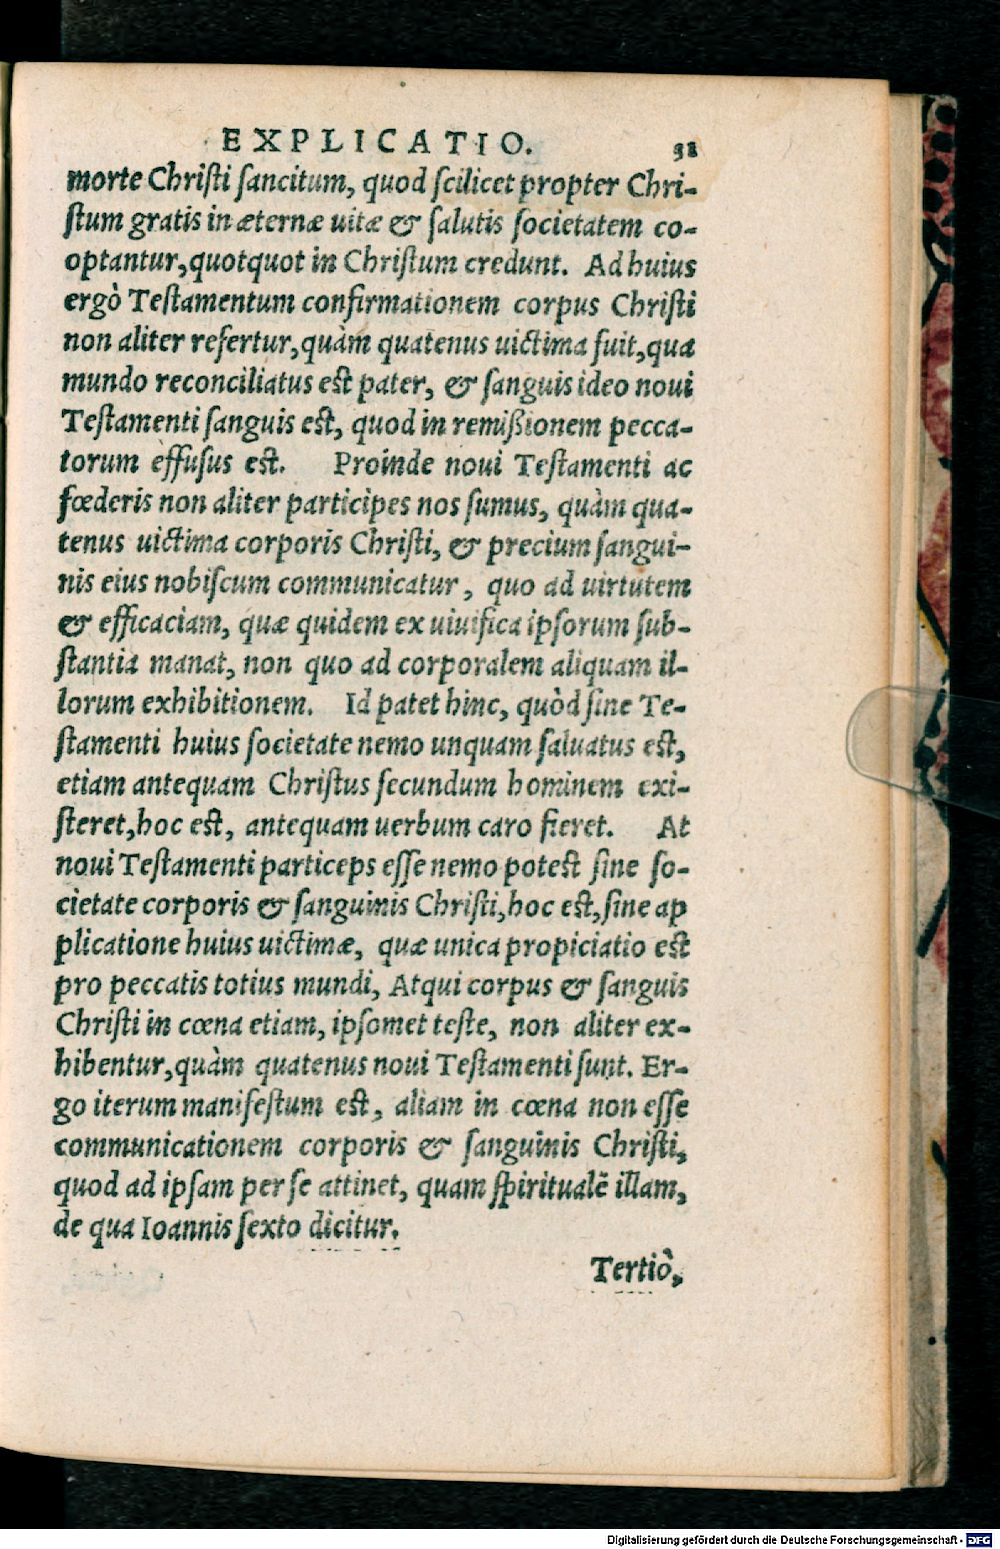 EXPLICATIO. 31
morte Christi sancitum, quod scilicet propter Chri-
stum gratis in æternæ uitæ & salutis societatem co-
optantur, quotquot in Christum credunt. Ad huius
ergò Testamentum confirmationem corpus Christi
non aliter refertur, quàm quatenus uictima fuit, qua
mundo reconciliatus est pater, & sanguis ideo noui
Testamenti sanguis est, quod in remißionem pecca-
torum effusus est. Proinde noui Testamenti ac
fœderis non aliter participes nos sumus, quàm qua-
tenus uictima corporis Christi, & precium sangui-
nis eius nobiscum communicatur, quo ad uirtutem
& efficaciam, quæ quidem ex uiuifica ipsorum sub-
stantia manat, non quo ad corporalem aliquam il-
lorum exhibitionem. Id patet hinc, quòd sine Te-
stamenti huius societate nemo unquam saluatus est,
etiam antequam Christus secundum hominem exi-
steret, hoc est, antequam uerbum caro fieret. At
noui Testamenti particeps esse nemo potest sine so-
cietate corporis & sanguinis Christi, hoc est, sine ap
plicatione huius uictimæ, quæ unica propiciatio est
pro peccatis totius mundi, Atqui corpus & sanguis
Christi in cœna etiam, ipsomet teste, non aliter ex-
hibentur, quàm quatenus noui Testamenti sunt. Er-
go iterum manifestum est, aliam in cœna non esse
communicationem corporis & sanguinis Christi,
quod ad ipsam per se attinet, quam spiritualē illam,
de qua Ioannis sexto dicitur.
Tertiò,
Digitalisierung gefördert durch die Deutsche Forschungsgemeinschaft - DFG